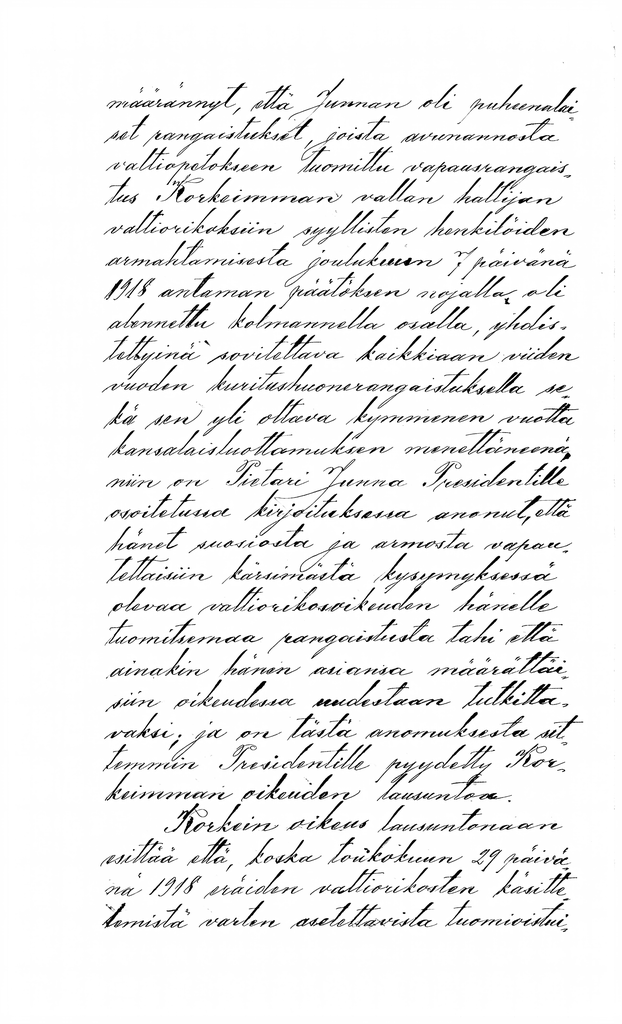 määrännyt, että Junnan oli puheenalai-
set rangaistukset, joista avunannosta
valtiopetokseen tuomittu vapausrangais-
tus "Korkeimman vallan haltijan
valtiorikoksiin syyllisten henkilöiden
armahtamisesta joulukuun 7 päivänä
1918 antaman päätöksen nojalla, oli
alennettu kolmannella osalla, yhdis-
tettyinä" sovitettava kaikkiaan viiden
vuoden kuritushuonerangaistuksella se-
kä sen yli oltava kymmenen vuotta
kansalaisluottamuksen menettäneenä,
niin on Pietari Junna Presidentille
osoitetussa kirjoituksessa anonut, että
hänet suosiosta ja armosta vapau-
tettaisiin kärsimästä kysymyksessä
olevaa valtiorikosoikeuden hänelle
tuomitsemaa rangaistusta tahi että
ainakin hänen asiansa määrättäi-
siin oikeudessa uudestaan tutkitta-
vaksi; ja on tästä anomuksesta sit-
temmin Presidentille pyydetty Kor-
keimman oikeuden lausuntoa.
Korkein oikeus lausuntonaan
esittää että, koska toukokuun 29 päivä-
nä 1918 eräiden valtiorikosten käsitte-
lemistä varten asetettavista tuomioistui-